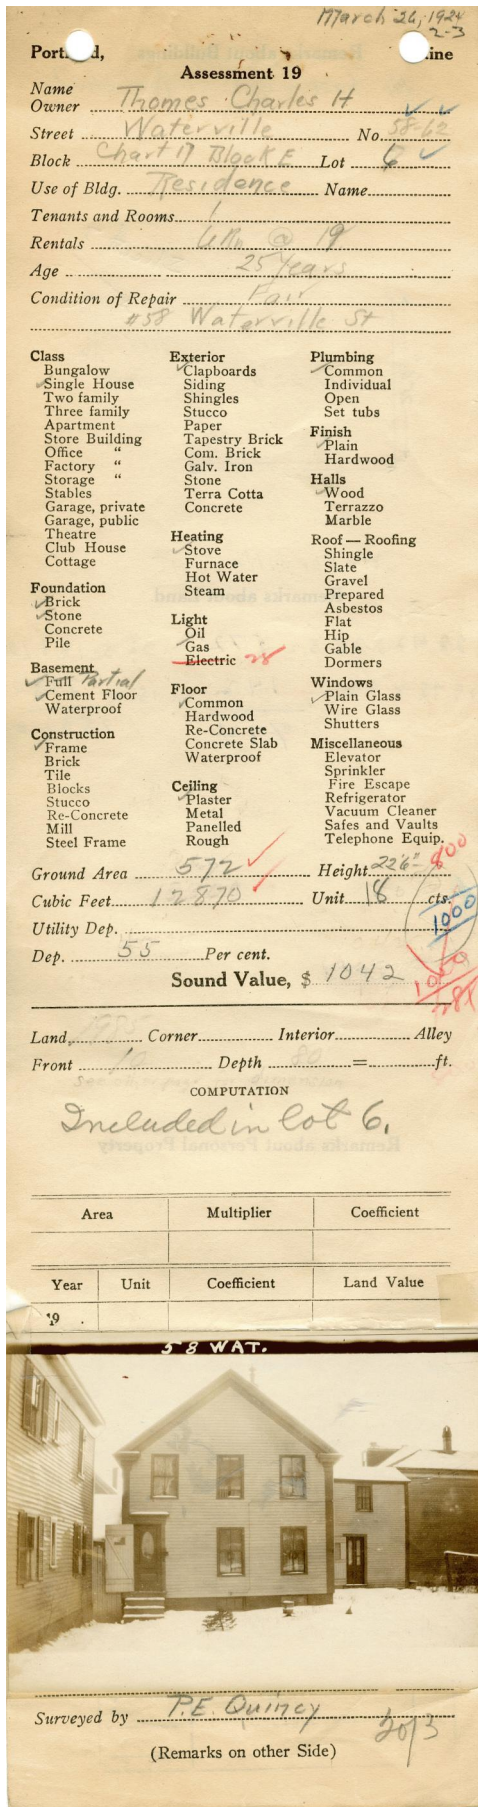 March 26, 1924
2-3
Portland, Maine
Assessment 19
Name
Owner Thomes Charles H
Street Waterville No. 58-62
Block Chart 17 Block E Lot 6
Use of Bldg. Residence Name
Tenants and Rooms 1
Rentals @ 19
Age 25 Years
Condition of Repair Fair
#58 Waterville St
Class
Bungalow
Single House
Two family
Three family
Apartment
Store Building
Office "
Factory "
Storage "
Stables
Garage, private
Garage, public
Theatre
Club House
Cottage
Foundation
Brick
Stone
Concrete
Pile
Basement
Full Partial
Cement Floor
Waterproof
Construction
Frame
Brick
Tile
Blocks
Stucco
Re-Concrete
Mill
Steel Frame
Exterior
Clapboards
Siding
Shingles
Stucco
Paper
Tapestry Brick
Com. Brick
Galv. Iron
Stone
Terra Cotta
Concrete
Heating
Stove
Furnace
Hot Water
Steam
Light
Oil
Gas
Electric
Floor
Common
Hardwood
Re-Concrete
Concrete Slab
Waterproof
Ceiling
Plaster
Metal
Panelled
Rough
Plumbing
Common
Individual
Open
Set tubs
Finish
Plain
Hardwood
Halls
Wood
Terrazzo
Marble
Roof — Roofing
Shingle
Slate
Gravel
Prepared
Asbestos
Flat
Hip
Gable
Dormers
Windows
Plain Glass
Wire Glass
Shutters
Miscellaneous
Elevator
Sprinkler
Fire Escape
Refrigerator
Vacuum Cleaner
Safes and Vaults
Telephone Equip.
Ground Area 572 Height 22'6" 800
Cubic Feet 12870 Unit 18 cts.
1000
Utility Dep.
Dep. 55 Per cent.
Sound Value, $ 1042
Land Corner Interior Alley
Front Depth = ft.
COMPUTATION
Included in lot 6.
Area Multiplier Coefficient
Year Unit Coefficient Land Value
19
58 WAT.
Surveyed by P.E. Quincy
(Remarks on other Side)